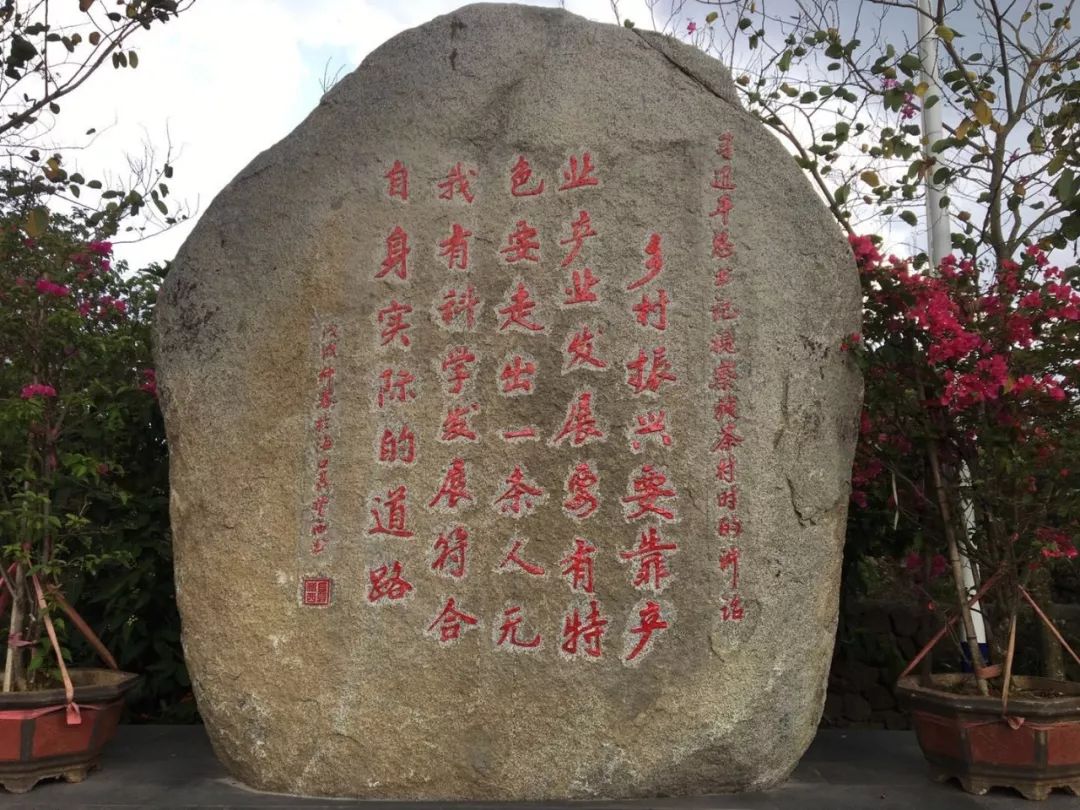 习近平总书记视察施茶村时的讲话
乡村振兴要靠产
业产业发展要有特
色要走出一条人无
我有科学发展符合
自身实际的道路
戊戌 於海口